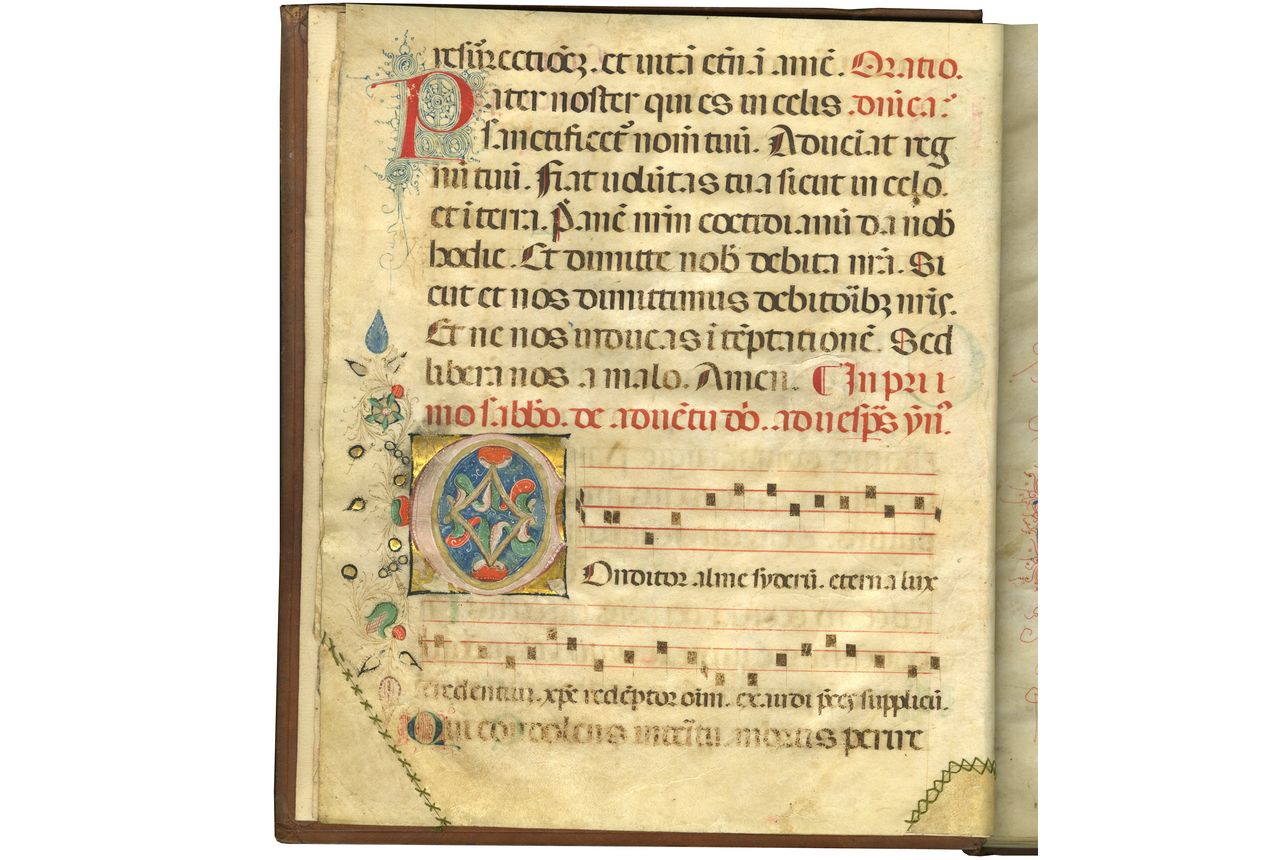 resurrectiõeȝ. et uitã etñã amẽ. Oratio.
Pater noster qui es in celis .dñica:
sanctificet᷑ nom̃ tuũ. Adueniat reg
nũ tuũ. Fiat uolũtas tua sicut in celo.
et ĩ terra. Panẽ nr̃m cotidianũ da nob̃
hodie. Et dimitte nob̃ debita nr̃a. Si
cut et nos dimittimus debitõibȝ nr̃is.
Et ne nos inducas ĩ tẽptationẽ. Sed
libera nos a malo. Amen. ¶ In pri
mo sabb̃o. de aduẽtu dñi. ad uesp̃as ymñ.
Conditor alme syderũ. eterna lux
credentiuz. xp̃e redẽptor oĩm. exaudi p̃ces supplicũ.
Qui condolens interitu. mortis perire